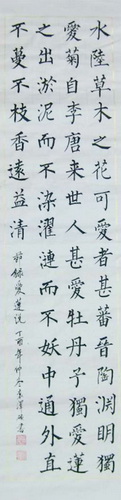 水陸草木之花可愛者甚蕃晉陶淵明獨
愛菊自李唐來世人甚愛牡丹予獨愛蓮
之出淤泥而不染濯漣而不妖中通外直
不蔓不枝香遠益清
節錄愛蓮說 丁酉年仲冬